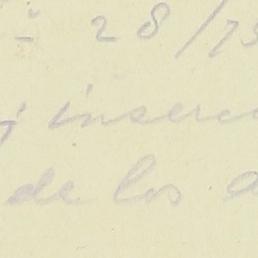 28/73
inserc
de los a